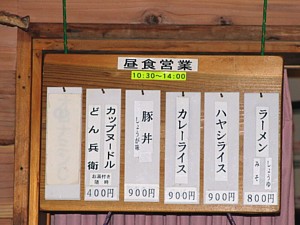 昼食営業
10:30~14:00
ラーメン
しょうゆ
みそ
800円
ハヤシライス
900円
カレーライス
900円
豚丼
しょうが味
900円
カップヌードル
どん兵衛
お湯付き
400円